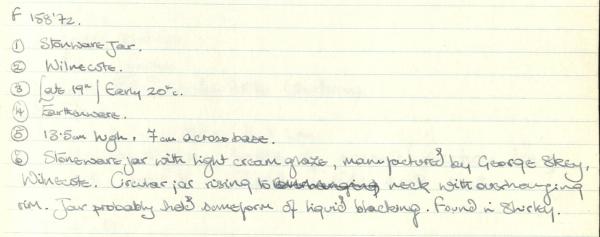 F 158'72.
① Stoneware Jar.
② Wilnecote.
③ Late 19th / Early 20th c.
④ Earthenware.
⑤ 13.5cm high, 7cm across base.
⑥ Stoneware jar with light cream glaze, manufactured by George Skey,
Wilnecote. Circular jar rising to overhanging neck with overhanging
rim. Jar probably held some form of liquid blacking. Found in Shirley.